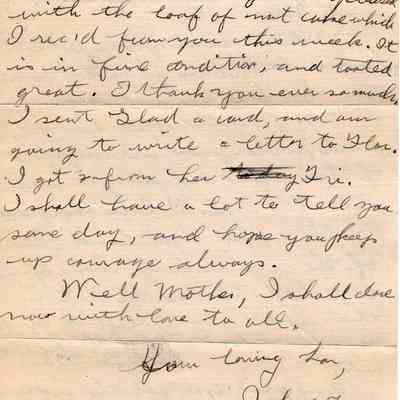 with the loaf of nut cake which
I rec'd from you this week. It
is in fine condition, and tasted
great. I thank you ever so much,
I sent Glad a card, and am
going to write a letter to Flor.
I got 2 from her today Fri.
I shall have a lot to tell you
some day, and hope you keep
up courage always.
Well Mother, I shall close
now with love to all.
Your loving Son,